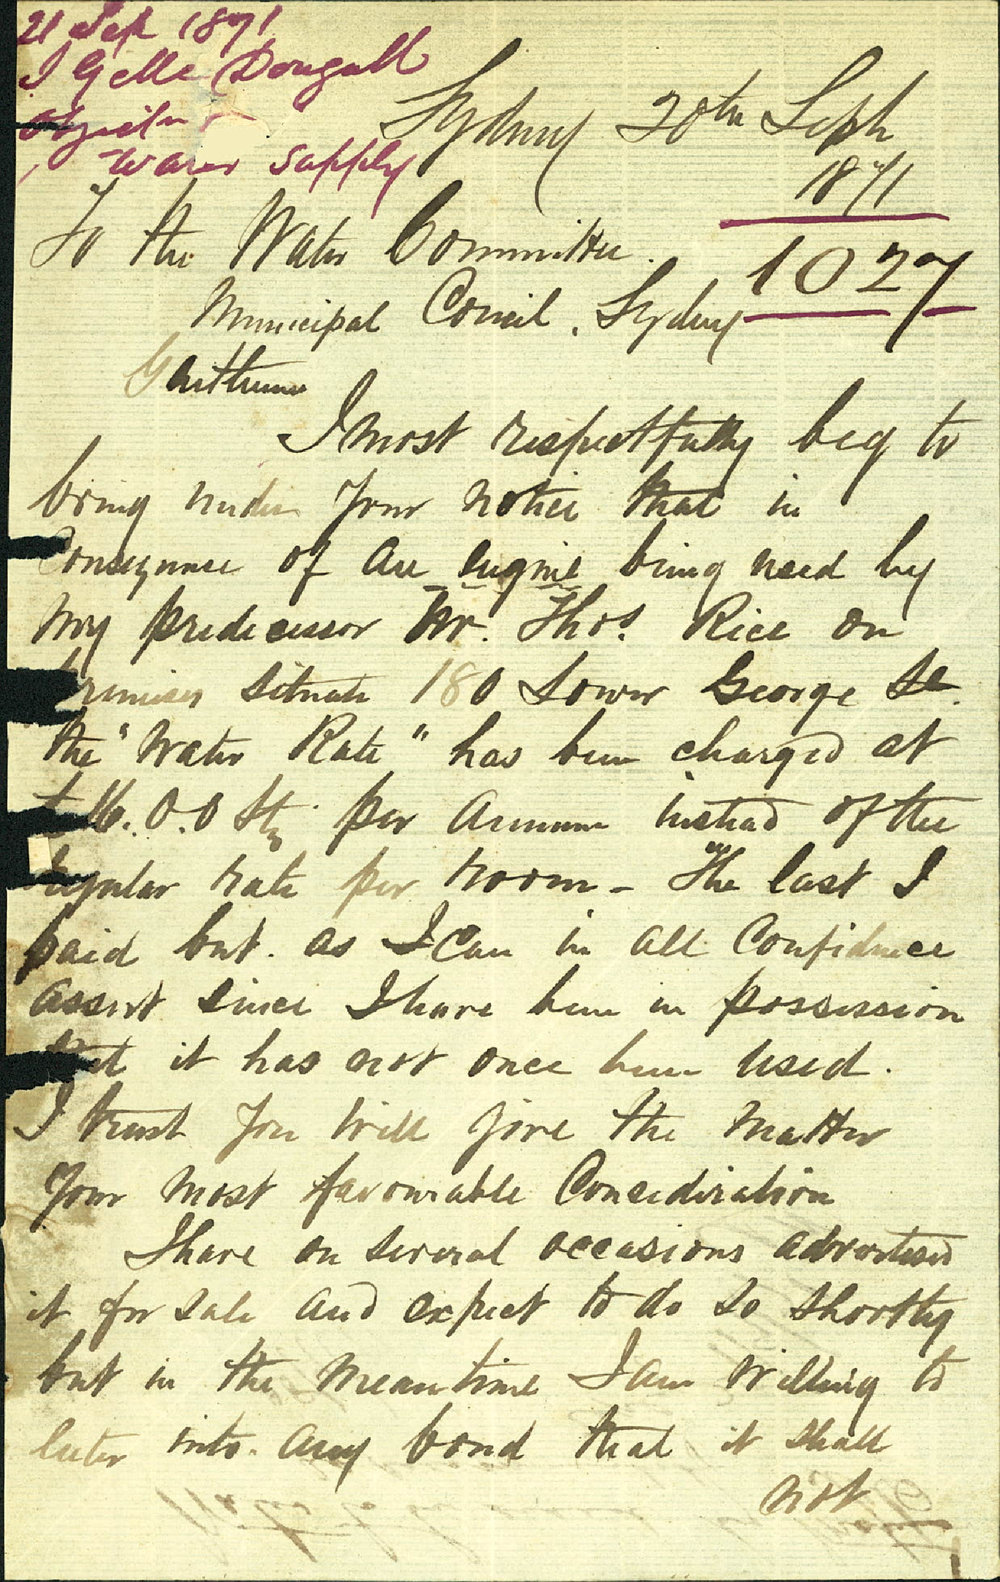 21 Sep 1871
Dougall
water supply
Sydney 20th Sept
1871
1027
To the Water Committee.
Municipal Council, Sydney
Gentlemen
I most respectfully beg to
bring under your notice that in
Consequence of an engine being used by
my predecessor Mr. Thos. Rice on
premises situate 180 Lower George St.
the "Water Rate" has been charged at
£16.0.0 Stg per Annum instead of the
regular rate per room - The last I
paid but. as I can in all Confidence
assert since I have been in possession
it has not once been used.
I trust you will give the matter
your most favourable Consideration
I have on several occasions advertised
it for sale and expect to do so shortly
but in the meantime I am willing to
enter into any bond that it shall
not